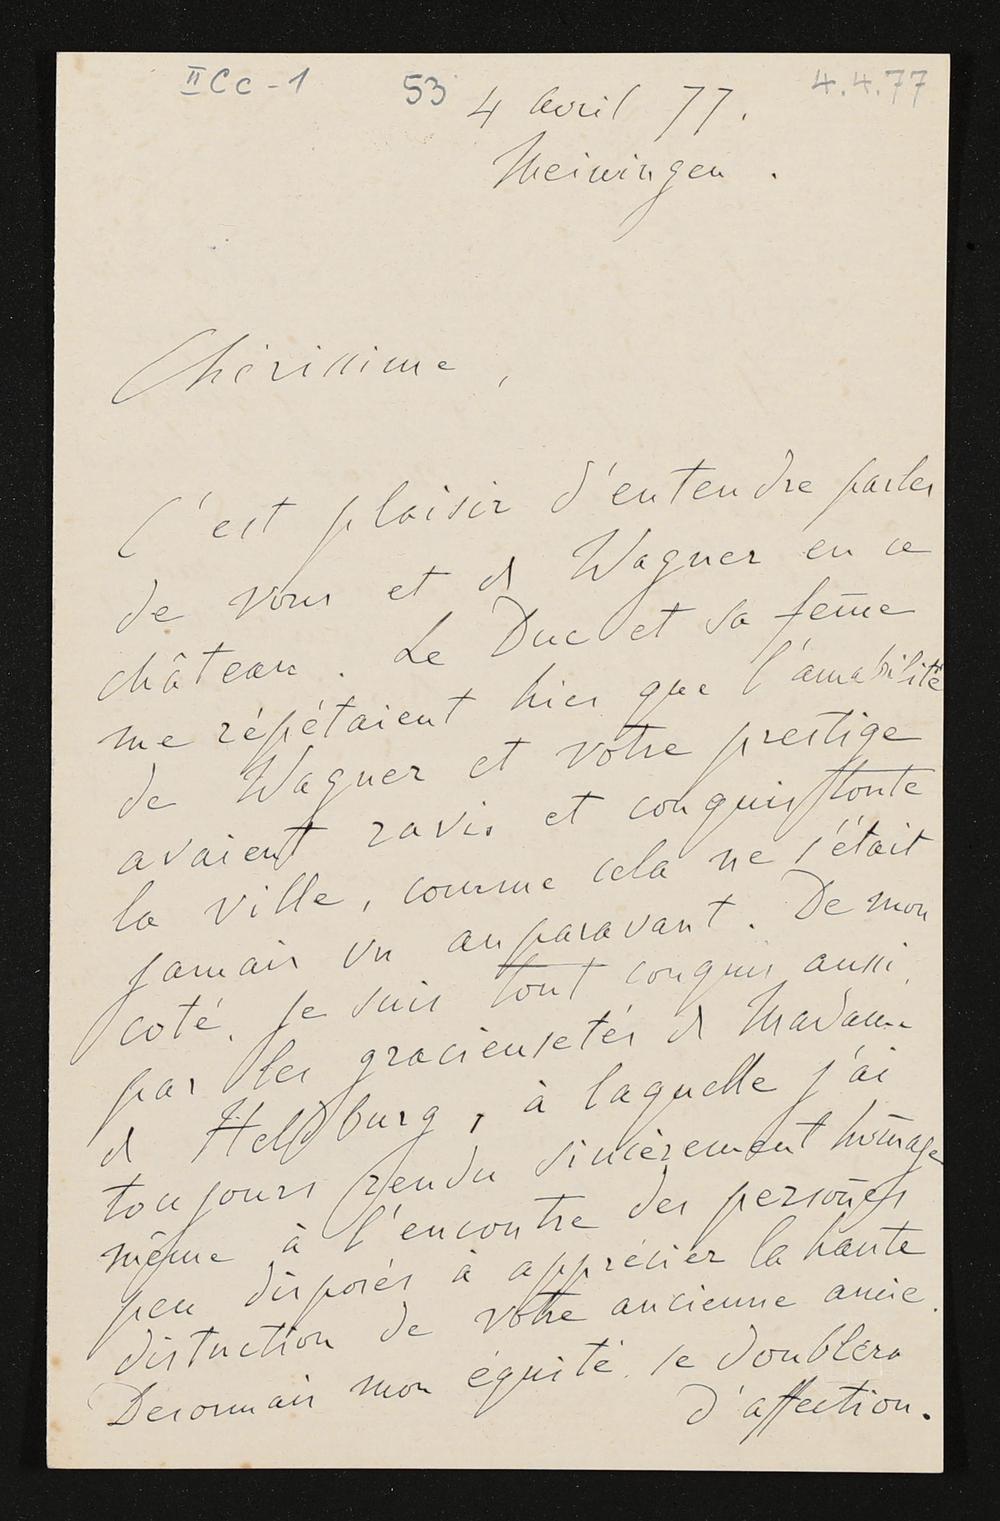 IICc-1 53 4.4.77
4 Avril 77.
Meiningen.
Chérissime,
C'est plaisir d'entendre parler
de vous et de Wagner en ce
château. Le Duc et sa fem̄e
me répétaient hier que l'amabilité
de Wagner et votre prestige
avaient ravis et conquis toute
la ville, comme cela ne s'était
jamais vu auparavant. De mon
coté, je suis tout conquis aussi
par les gracieusetés de Madame
de Heldburg, à laquelle j'ai
toujours rendu sincèrement hom̄age
même à l'encontre des person̄es
peu disposés à apprécier la haute
distinction de votre ancienne amie.
Desormais mon équité se doublera
d'affection.